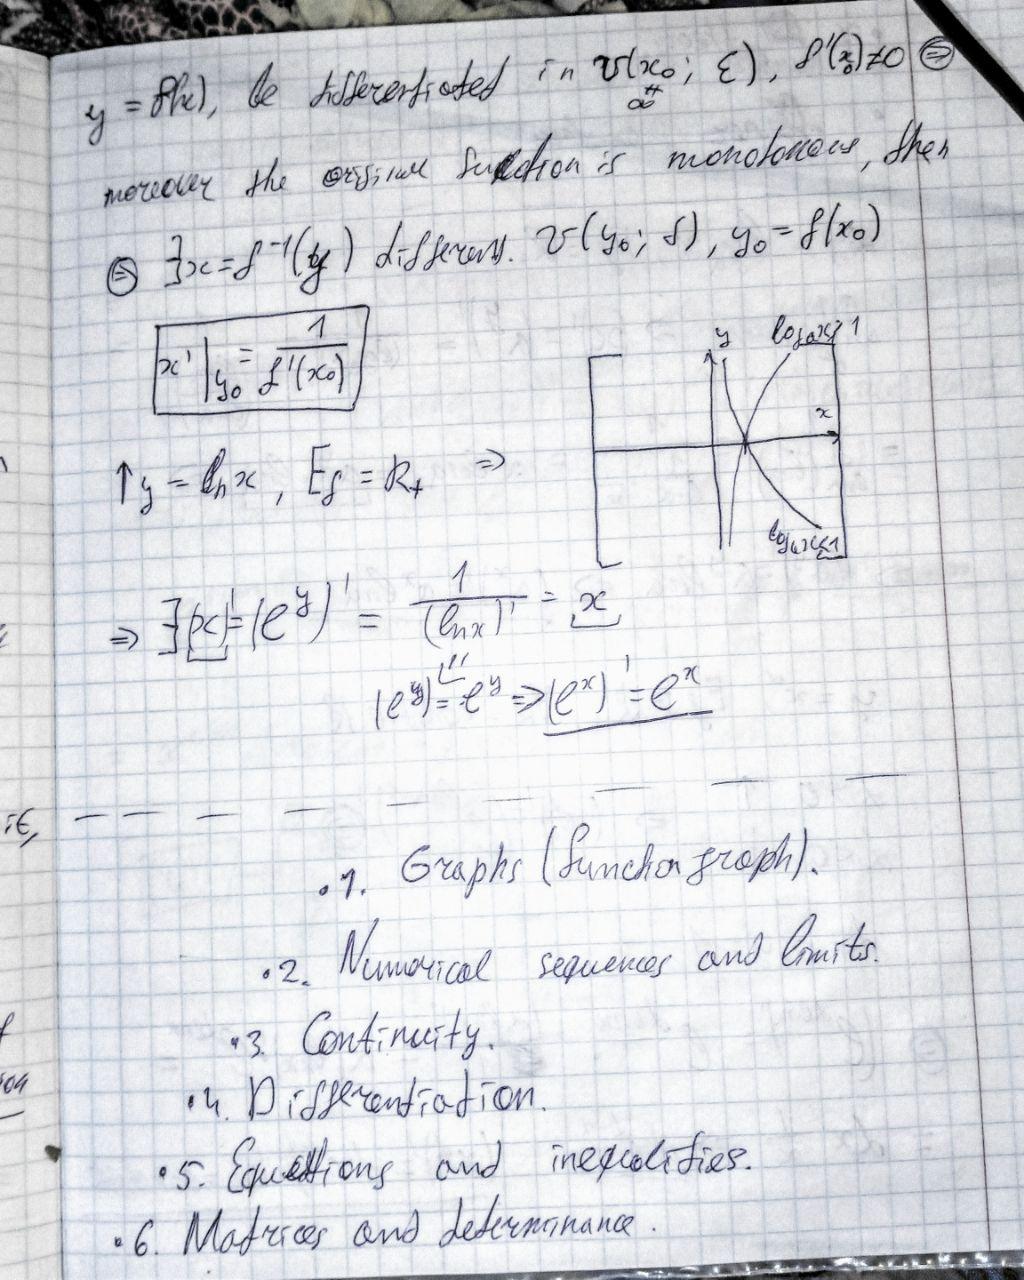 y = f(x), be differentiated in U(x₀; ε), f'(x₀)≠0 ⇒
moreover the original function is monotonous, then
⇒ ∃x=f⁻¹(y) different. U(y₀; δ), y₀=f(x₀)
x'|y₀ = 1/f'(x₀)
y
logₐx>1
x
logₐx<1
↑y = ln x, E_f = R₊ ⇒
⇒ ∃(x)'=(e^y)' = 1/(ln x)' = x
(e^y)' = e^y ⇒ (e^x)' = e^x
.1. Graphs (function graph).
.2. Numerical sequences and limits.
.3. Continuity.
.4. Differentiation.
.5. Equations and inequalities.
.6. Matrices and determinance.